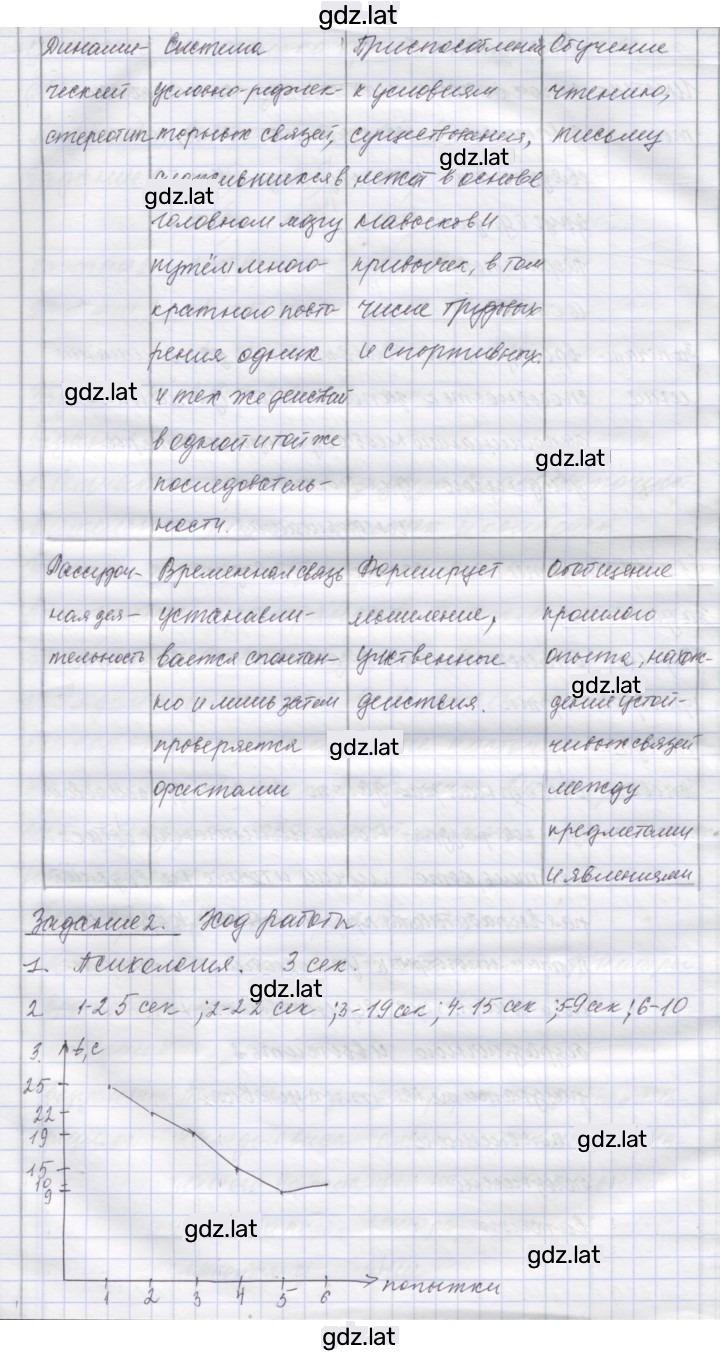 gdz.lat
Динами-
ческий
стереотип
Система
условно-рефлек-
торных связей,
в
головном мозгу
путём много-
кратного повто-
рения одних
и тех же действий
в одной и той же
последователь-
ности.
Приспособление
к условиям
существования,
лежат в основе
навыков и
привычек, в том
числе трудовых
и спортивных.
Обучение
чтению,
письму
gdz.lat
gdz.lat
gdz.lat
gdz.lat
Рассудоч-
ная дея-
тельность
Временная связь
устанавли-
вается спонтан-
но и лишь затем
проверяется
фактами
Формирует
мышление,
умственные
действия.
Обобщение
прошлого
опыта, нахож-
дение устой-
чивых связей
между
предметами
и явлениями
gdz.lat
gdz.lat
Задание 2. Ход работы
1. Психология. 3 сек.
gdz.lat
2 1-25 сек ; 2-22 сек ; 3-19 сек ; 4-15 сек ; 5-9 сек ; 6-10
3. t, с
25
22
19
15
10
9
1 2 3 4 5 6 попытки
gdz.lat
gdz.lat
gdz.lat
gdz.lat